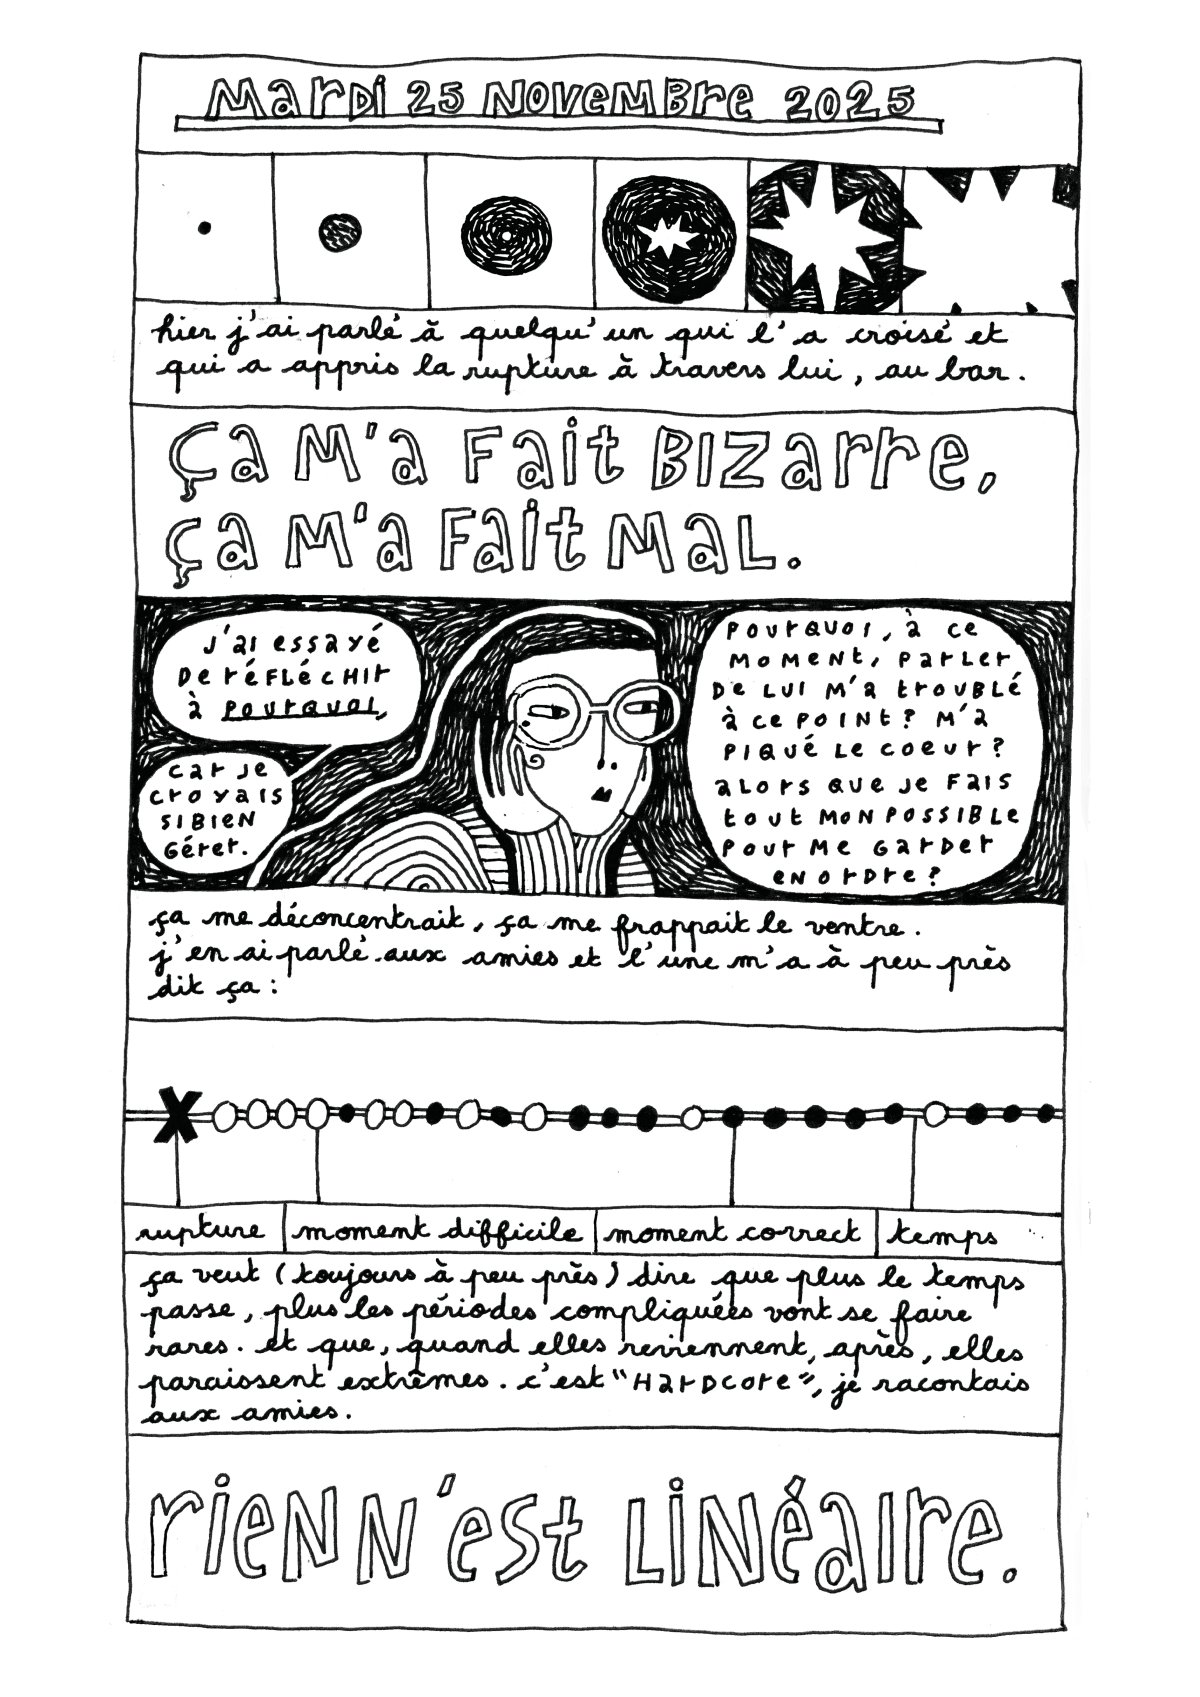 Mardi 25 Novembre 2025
hier j'ai parlé à quelqu'un qui l'a croisé et
qui a appris la rupture à travers lui, au bar.
ça m'a fait bizarre,
ça m'a fait mal.
j'ai essayé
de réfléchir
à pourquoi,
car je
croyais
si bien
gérer.
pourquoi, à ce
moment, parler
de lui m'a troublé
à ce point? m'a
piqué le coeur?
alors que je fais
tout mon possible
pour me garder
en ordre?
ça me déconcentrait, ça me frappait le ventre.
j'en ai parlé aux amies et l'une m'a à peu près
dit ça :
rupture
moment difficile
moment correct
temps
ça veut (toujours à peu près) dire que plus le temps
passe, plus les périodes compliquées vont se faire
rares. et que, quand elles reviennent, après, elles
paraissent extrêmes. c'est "Hardcore", je racontais
aux amies.
rien n'est linéaire.